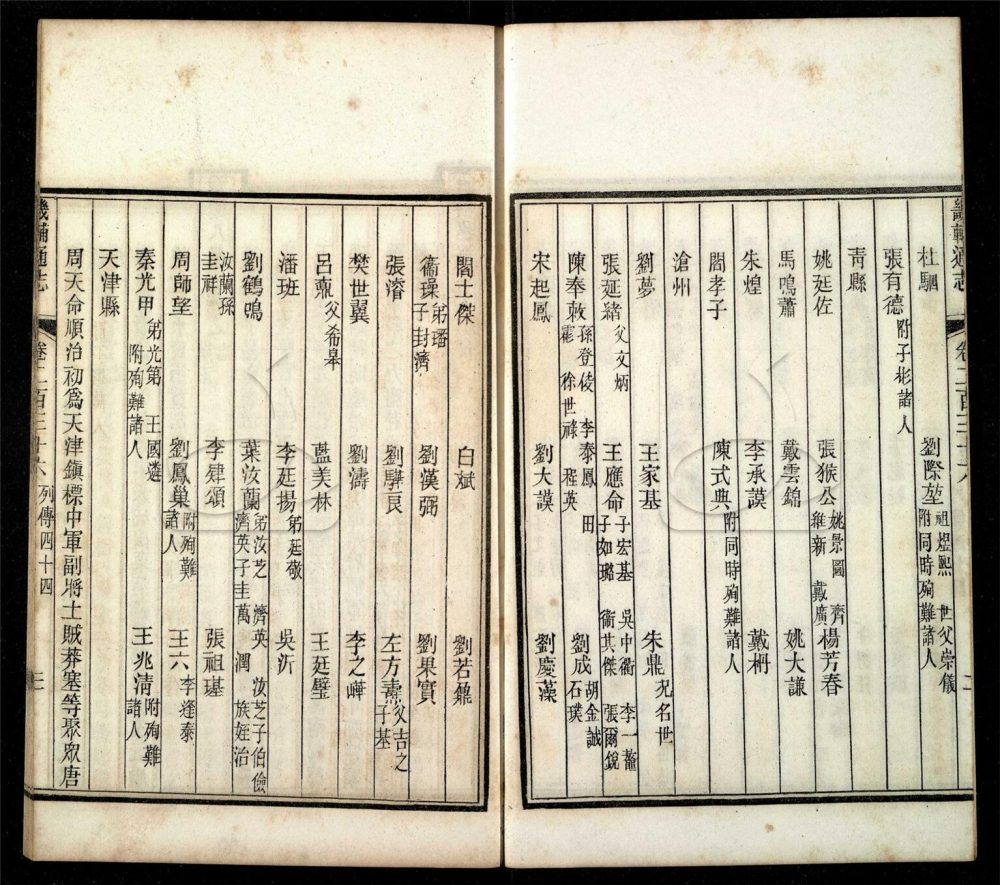 畿輔通志 卷二百三十六 二
杜駰 劉際堃 祖煜熙 世父崇儀 附同時殉難諸人
張有德 附子彬諸人
青縣
姚廷佐 張猴公 姚景圖 齊維新 戴廣 楊芳春
馬鳴蕭 戴雲錦 姚大謙
朱煌 李承謨 戴枬
閻孝子 陳式典 附同時殉難諸人
滄州
劉夢 王家基 朱鼎 兄名世
張延緒 父文炳 王應命 子宏基 子如璐 吳中衢 衛其傑 李一鼇 張爾銳
陳奉敕 孫登俊 徐世祿 李泰鳳 程英 田 劉成 胡金誠 石璞
宋起鳳 劉大謨 劉慶藻
閻士傑 白斌 劉若鼐
衞璪 弟璠 子封濟 劉漢弼 劉果實
張濬 劉騂良 左方燾 父吉之 子基
樊世翼 劉濤 李之嶧
呂薡 父希皋 藍美林 王廷璧
潘班 李廷揚 弟廷敬 吳沂
劉鶴鳴 葉汝蘭 弟汝芝 濟英 濟英子圭萬 潤 汝芝子伯儉 族姪治
汝蘭孫圭祥 李肄頌 張祖基
周師望 劉鳳巢 附殉難諸人 王六 李逢泰
秦光甲 弟光第 王國遴 附殉難諸人 王兆淸 附殉難諸人
天津縣
周天命順治初爲天津鎭標中軍副將土賊莽塞等聚眾唐
畿輔通志 卷二百三十六 列傳四十四 三